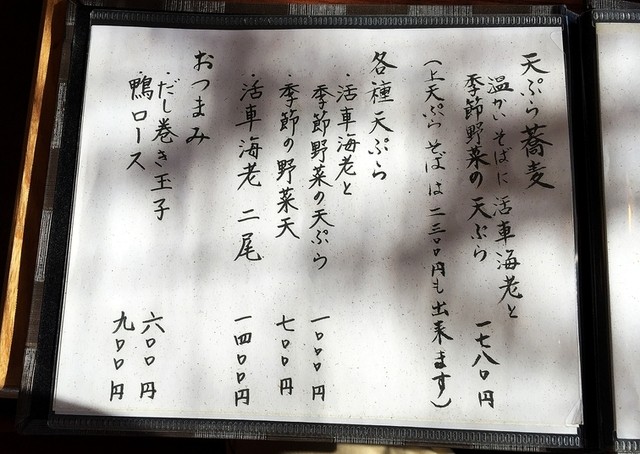 天ぷら蕎麦
温かいそばに活車海老と
季節野菜の天ぷら 一七八〇円
(上天ぷらそばは二三〇〇円も出来ます)
各種天ぷら
・活車海老と
季節野菜の天ぷら 一〇〇〇円
・季節の野菜天 七〇〇円
活車海老 二尾 一四〇〇円
おつまみ
だし巻き玉子 六〇〇円
鴨ロース 九〇〇円